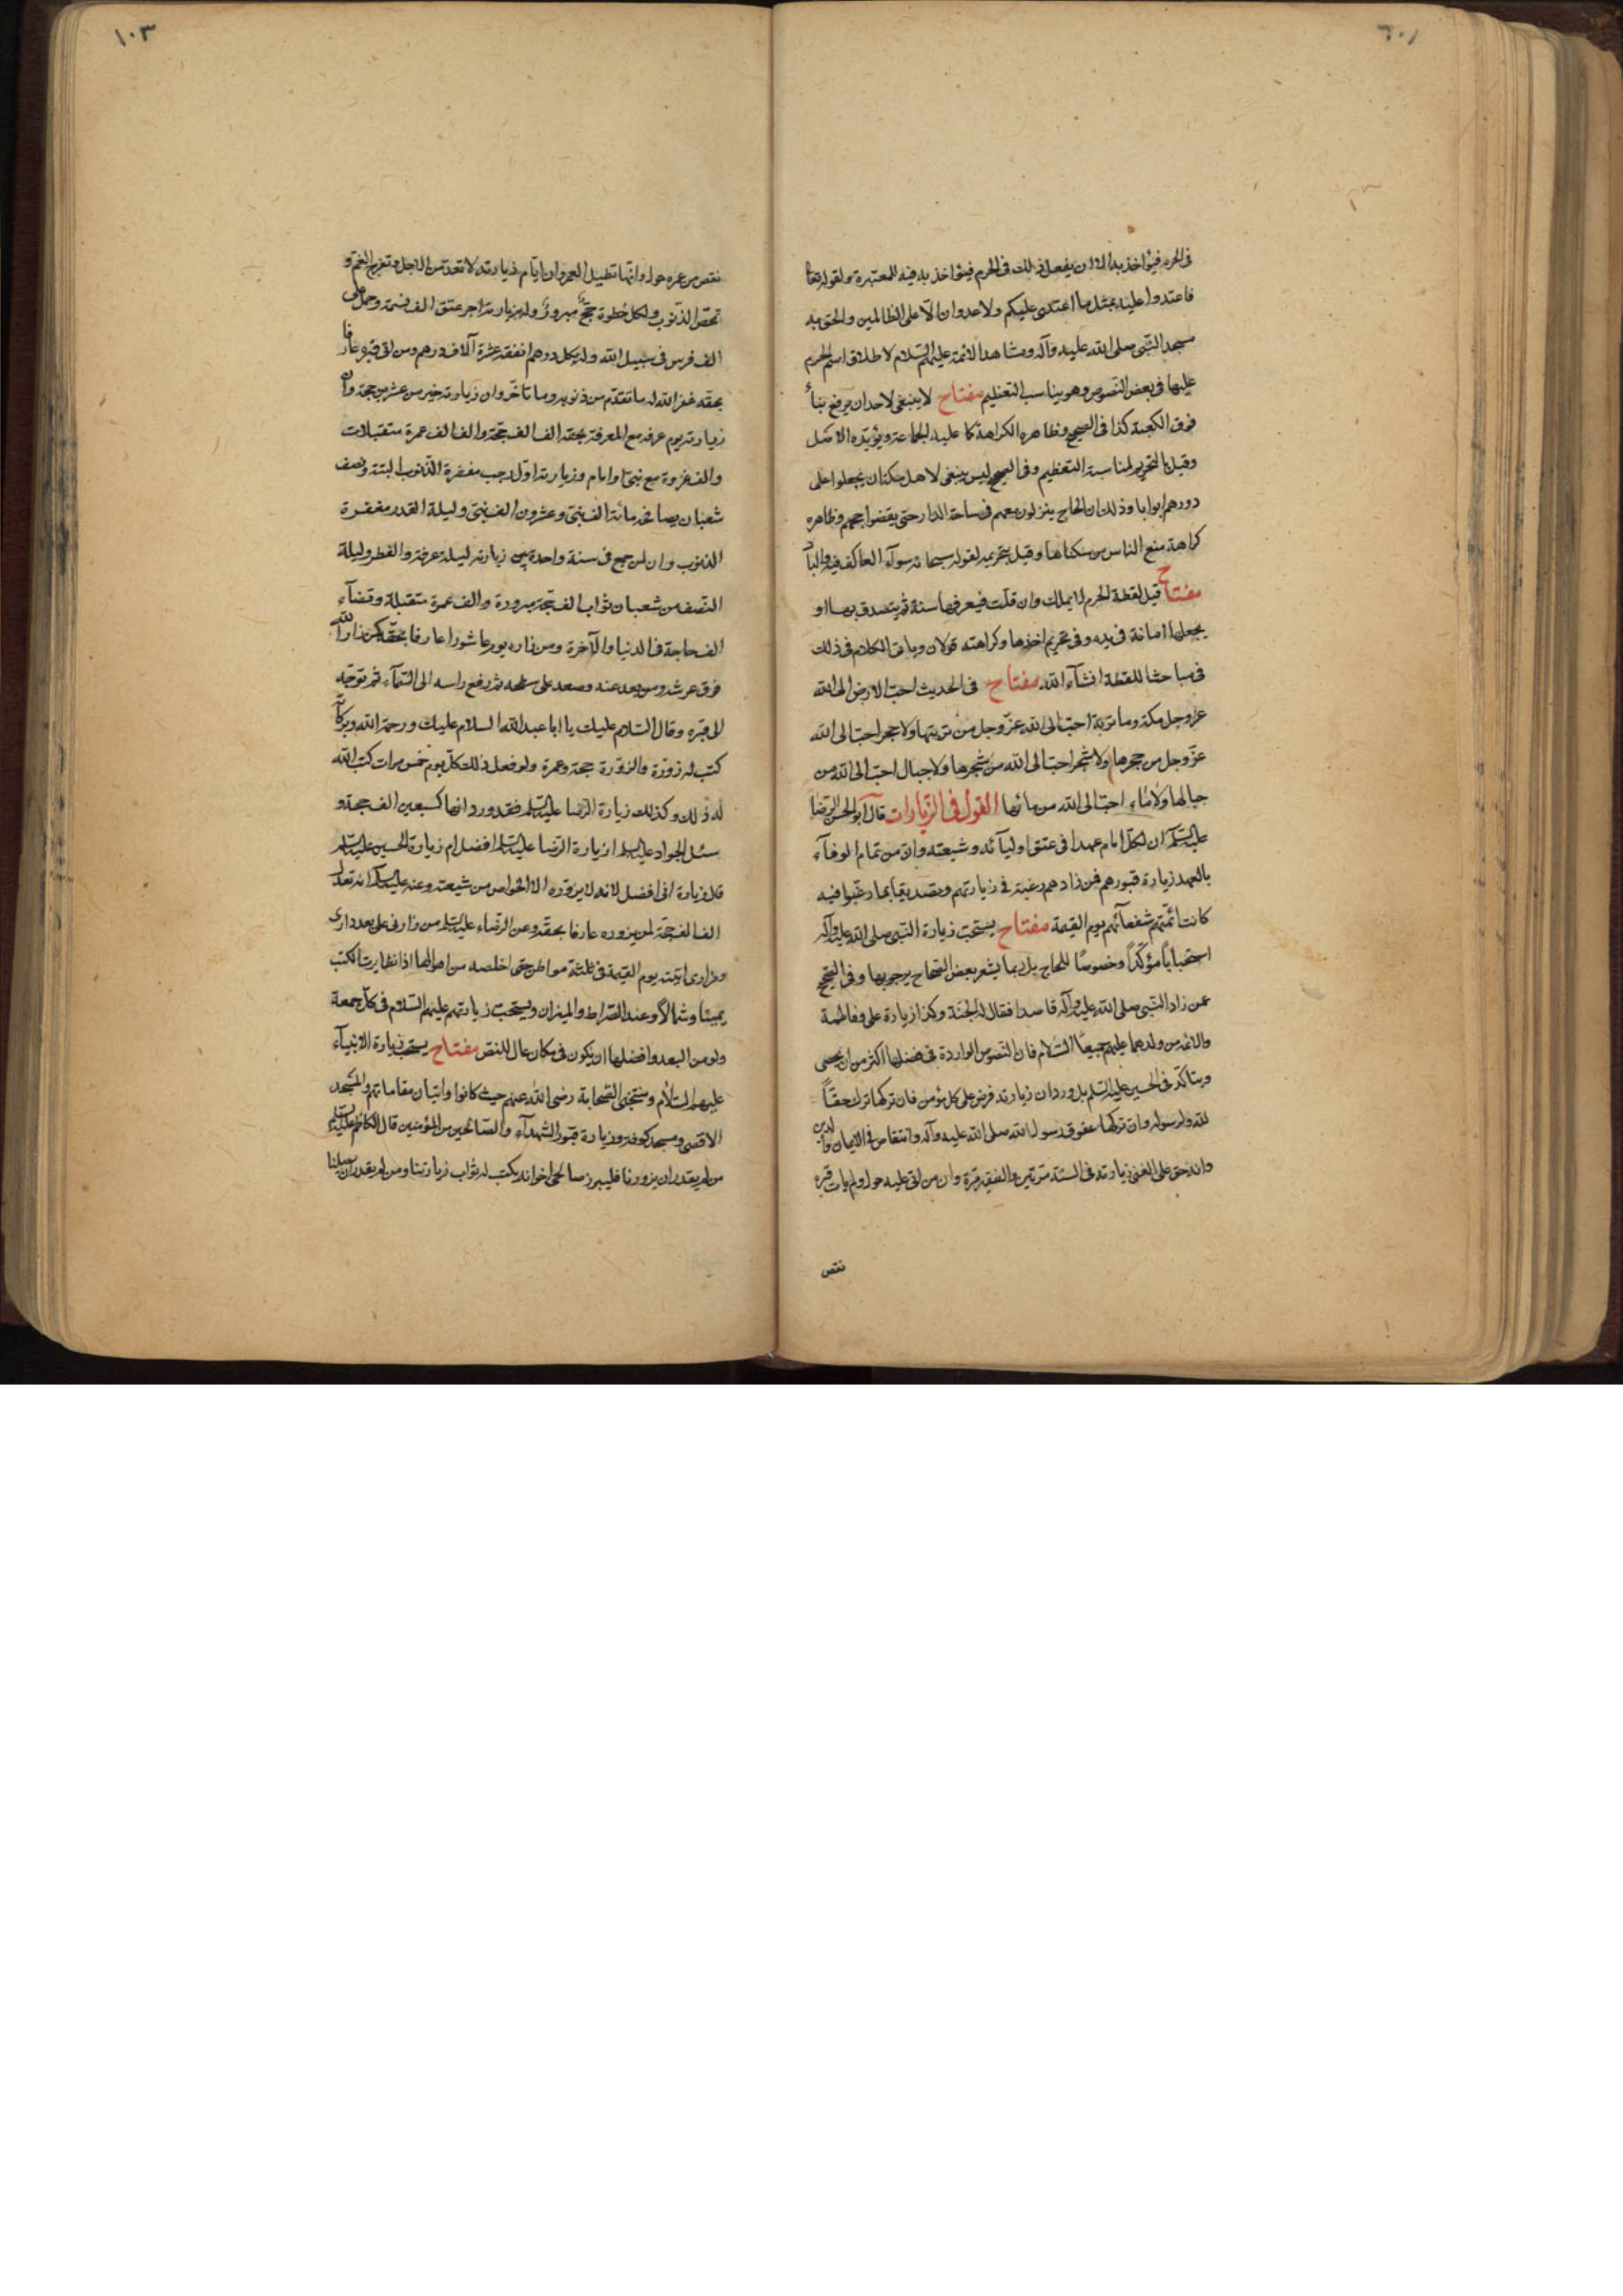 ١٠٢
فى الحرم فيؤاخذ به الا ان يفعل ذلك فى الحرم فيؤاخذ به فيه للمعتبرة ولقوله تعا
فاعتدوا عليه بمثل ما اعتدى عليكم ولا عدوان الّا على الظالمين والحق به
مسجد النبّى صلى الله عليه وآله ومشاهد الائمة عليهم السّلام لاطلاق اسم الحرم
عليها فى بعض النّصوص وهو يناسب التعظيم مفتاح لا ينبغى لاحد ان يرفع بناءً
فوق الكعبة كذا فى الصحيح وظاهره الكراهة كما عليه الجماعة ويؤيّده الاصل
وقيل بالتحريم لمناسبة التعظيم وفى الصحيح ليس ينبغى لاهل مكة ان يجعلوا على
دورهم ابوابا وذلك ان الحاج ينزلون معهم فى ساحة الدار حتى يقضوا حجهم وظاهره
كراهة منع الناس من سكناها وقيل بتحريمه لقوله سبحانه سوآء العاكف فيه والباد
مفتاح قيل لقطة الحرم لا يملك وان قلّت فيعرفها سنة ثم يتصدق بها او
يجعلها امانة فى يده وفى تحريم اخذها وكراهته قولان وياتى الكلام فى ذلك
فى مباحث اللقطة انشآء الله مفتاح فى الحديث احبّ الارض الى الله
عز وجل مكة وما تربة احبّ الى الله عزّ وجل من تربتها ولا حجر احبّ الى الله
عزّ وجل من حجرها ولا شجر احبّ الى الله من شجرها ولا جبال احبّ الى الله من
جبالها ولا ماء احبّ الى الله من مائها القول فى الزّيارات قال ابو الحسن الرّضا
عليه السّلم ان لكلّ امام عهدا فى عنق اوليآئه وشيعته وانّ من تمام الوفآء
بالعهد زيارة قبورهم فمن زارهم رغبة فى زيارتهم وتصديقا بما رغّبوا فيه
كانت ائمّتهم شفعآئهم يوم القيمة مفتاح يستحبّ زيارة النّبى صلى الله عليه وآله
استحباباً مؤكّداً وخصوصًا للحاج بل ربما يشعر بعض الصّحاح بوجوبها وفى الصّحيح
عمن زار النّبى صلى الله عليه وآله قاصدا فقال له الجنّة وكذا زيارة على وفاطمة
والائمة من ولدهما عليهم جميعًا السّلام فان النّصوص الواردة فى فضلها اكثر من ان يحصى
ويتاكّد فى الحسين عليه السّلم بل ورد ان زيارته فرض على كل مؤمن فان تركها ترك حقّاً
لله ولرسوله وان تركها عقوق رسول الله صلى الله عليه وآله وانتقاص فى الايمان والدين
وانه حق على الغنى زيارته فى السنة مرّتين والفقير مرّة وان من اتى عليه حول ولم يات قبره
نقص
١٠٣
نقص من عمره حول وانّها تطيل العمر وان ايّام زيارته لا تعدّ من الاجل وتفرج الغمّ و
تمحّص الذّنوب ولكل خطوة حجّة مبرورة وله بزيارته اجر عتق الف نسمة وحمل على
الف فرس فى سبيل الله وله بكل درهم انفقه عشرة آلاف درهم ومن اتى قبره عارفا
بحقه غفر الله له ما تقدّم من ذنوبه وما تاخّر وان زيارته خير من عشرين حجة وان
زيارته يوم عرفة مع المعرفة بحقه الف الف حجّة والف الف عمرة متقبلات
والف غزوة مع نبىّ او امام وزيارته اوّل رجب مغفرة الذّنوب البتّة ونصف
شعبان يصافحه مائة الف نبىّ وعشرون الف نبىّ وليلة القدر مغفرة
الذنوب وان لمن جمع فى سنة واحدة بين زيارته ليلة عرفة والفطر وليلة
النّصف من شعبان ثواب الف حجّة مبرورة والف عمرة متقبلة وقضآء
الف حاجة فى الدنيا والآخرة ومن زاره يوم عاشورا عارفا بحقّه كمن زار الله
فوق عرشه ومن بعد عنه وصعد على سطحه ثم رفع راسه الى السّمآء ثم توجّه
الى قبره وقال السّلام عليك يا ابا عبد الله السلام عليك ورحمة الله وبركاته
كتب له زورة والزّورة حجة وعمرة ولو فعل ذلك كلّ يوم خمس مرات كتب الله
له ذلك وكذلك زيارة الرّضا عليه السّلم فقد ورد انها كسبعين الف حجة و
سئل الجواد عليه السلم ازيارة الرّضا عليه السّلم افضل ام زيارة الحسين عليه السّلم
قال زيارة ابى افضل لانه لا يزوره الا الخواص من شيعته وعنه عليه السلم انه تعدل
الف الف حجّة لمن يزوره عارفا بحقّه وعن الرضاء عليه السلم من زارنى على بعد دارى
ومزارى اتيته يوم القيمة فى ثلثة مواطن حتى اخلصه من اهوالها اذا تطايرت الكتب
يمينا وشمالاً وعند الصّراط والميزان ويستحب زيارتهم عليهم السّلام فى كلّ جمعة
ولو من البعد وافضلها ان يكون فى مكان عال للنص مفتاح يستحب زيارة الانبيآء
عليهم السّلام ومنتجبى الصّحابة رضى الله عنهم حيث كانوا واتيان مقاماتهم والمسجد
الاقصى ومسجد كوفة وزيارة قبور الشهدآء والصّالحين من المؤمنين قال الكاظم عليه السلم
من لم يقدر ان يزورنا فليبرز صالحى اخوانه يكتب له ثواب زيارتنا ومن لم يقدر ان يصلنا